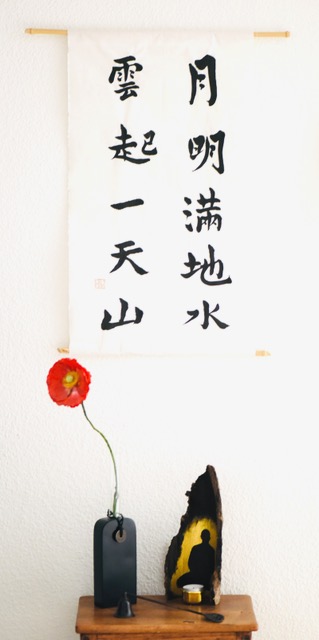 月明満地水
雲起一天山